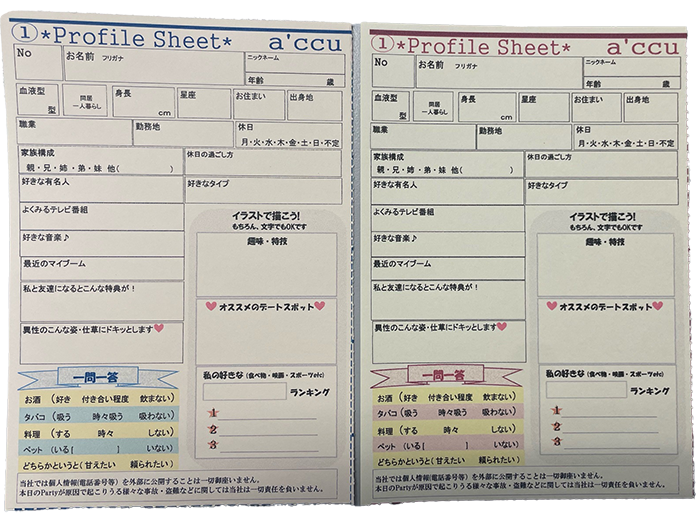 ①*Profile Sheet* a'ccu
No
お名前 フリガナ
ニックネーム
年齢 歳
血液型 型
同居 一人暮らし
身長 cm
星座
お住まい
出身地
職業
勤務地
休日
月・火・水・木・金・土・日・不定
家族構成
親・兄・姉・弟・妹 他( )
休日の過ごし方
好きな有名人
好きなタイプ
よくみるテレビ番組
好きな音楽♪
最近のマイブーム
私と友達になるとこんな特典が!
異性のこんな姿・仕草にドキッとします♥
イラストで描こう!
もちろん、文字でもOKです
趣味・特技
♥オススメのデートスポット♥
私の好きな(食べ物・映画・スポーツetc)
ランキング
1
2
3
一問一答
お酒 (好き 付き合い程度 飲まない)
タバコ (吸う 時々吸う 吸わない)
料理 (する 時々 しない)
ペット (いる[ ] いない)
どちらかというと(甘えたい 頼られたい)
当社では個人情報(電話番号等)を外部に公開することは一切御座いません。
本日のPartyが原因で起こりうる様々な事故・盗難などに関しては当社は一切責任を負いません。
①*Profile Sheet* a'ccu
No
お名前 フリガナ
ニックネーム
年齢 歳
血液型 型
同居 一人暮らし
身長 cm
星座
お住まい
出身地
職業
勤務地
休日
月・火・水・木・金・土・日・不定
家族構成
親・兄・姉・弟・妹 他( )
休日の過ごし方
好きな有名人
好きなタイプ
よくみるテレビ番組
好きな音楽♪
最近のマイブーム
私と友達になるとこんな特典が!
異性のこんな姿・仕草にドキッとします♥
イラストで描こう!
もちろん、文字でもOKです
趣味・特技
♥オススメのデートスポット♥
私の好きな(食べ物・映画・スポーツetc)
ランキング
1
2
3
一問一答
お酒 (好き 付き合い程度 飲まない)
タバコ (吸う 時々吸う 吸わない)
料理 (する 時々 しない)
ペット (いる[ ] いない)
どちらかというと(甘えたい 頼られたい)
当社では個人情報(電話番号等)を外部に公開することは一切御座いません。
本日のPartyが原因で起こりうる様々な事故・盗難などに関しては当社は一切責任を負いません。